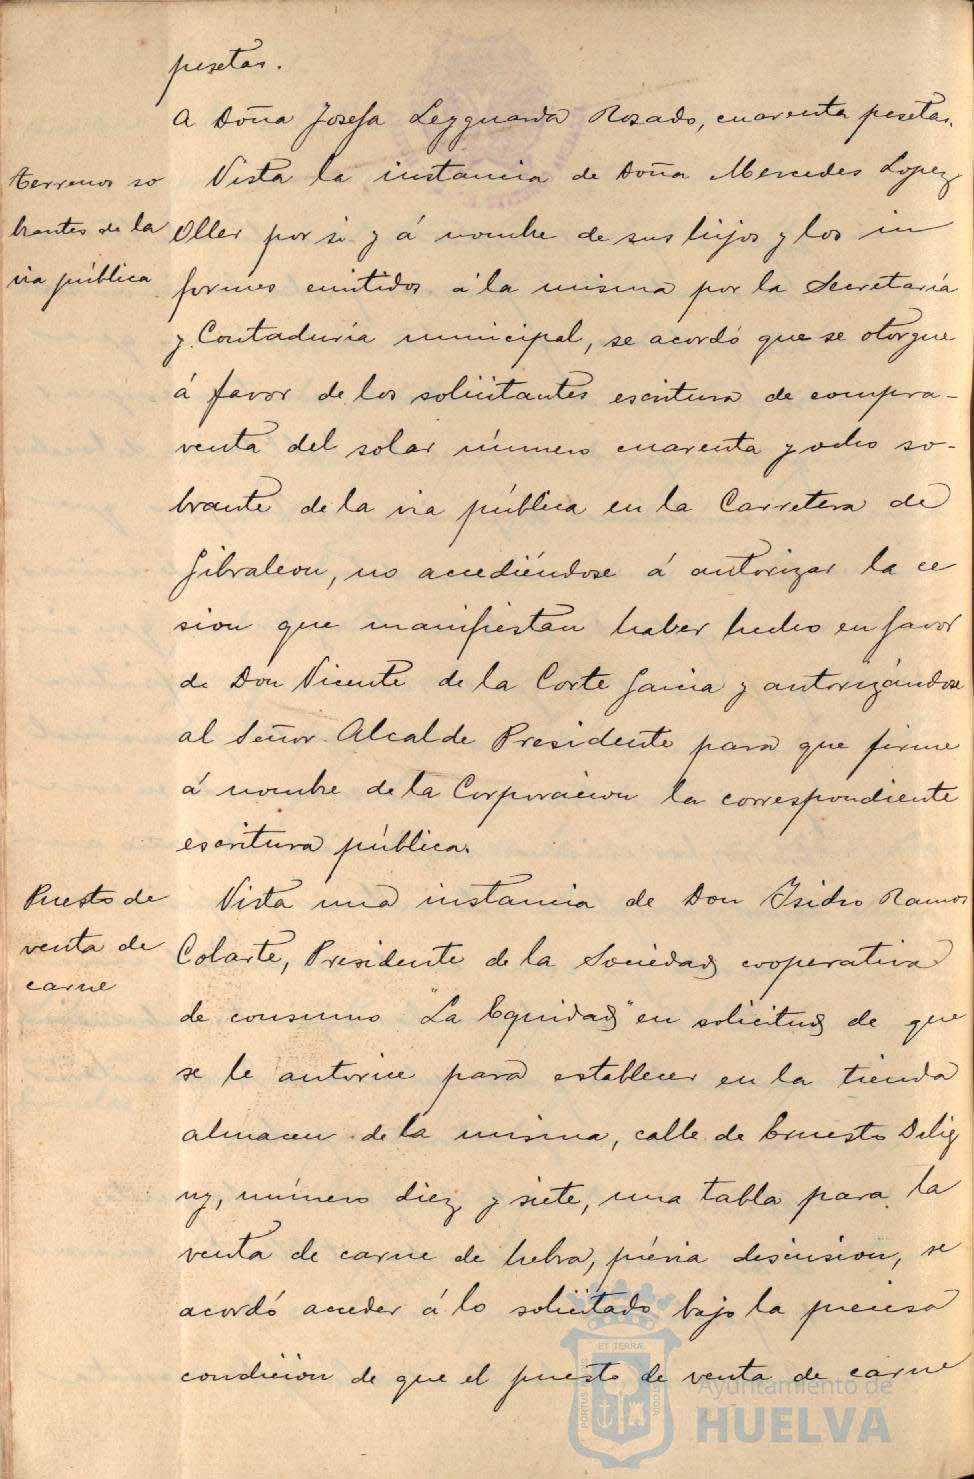 pesetas.
A Doña Josefa Leyguarda Rosado, cuarenta pesetas.
Terrenos so
brantes de la
via pública
Vista la instancia de Doña Mercedes Lopez
Oller por si y á nombre de sus hijos y los in
formes emitidos á la misma por la Secretaría
y Contaduría municipal, se acordó que se otorgue
á favor de los solicitantes escritura de compra-
venta del solar número cuarenta y ocho so-
brante de la via pública en la Carretera de
Gibraleon, no accediéndose á autorizar la ce
sion que manifiestan haber hecho en favor
de Don Vicente de la Corte Garcia y autorizándose
al Señor Alcalde Presidente para que firme
á nombre de la Corporacion la correspondiente
escritura pública.
Puesto de
venta de
carne
Vista una instancia de Don Isidro Ramos
Colarte, Presidente de la Sociedad cooperativa
de consumo "La Equidad" en solicitud de que
se le autorice para establecer en la tienda
almacen de la misma, calle de Ernesto Delig
ny, número diez y siete, una tabla para la
venta de carne de hebra, prévia discusion, se
acordó acceder á lo solicitado bajo la precisa
condicion de que el puesto de venta de carne
Ayuntamiento de
HUELVA